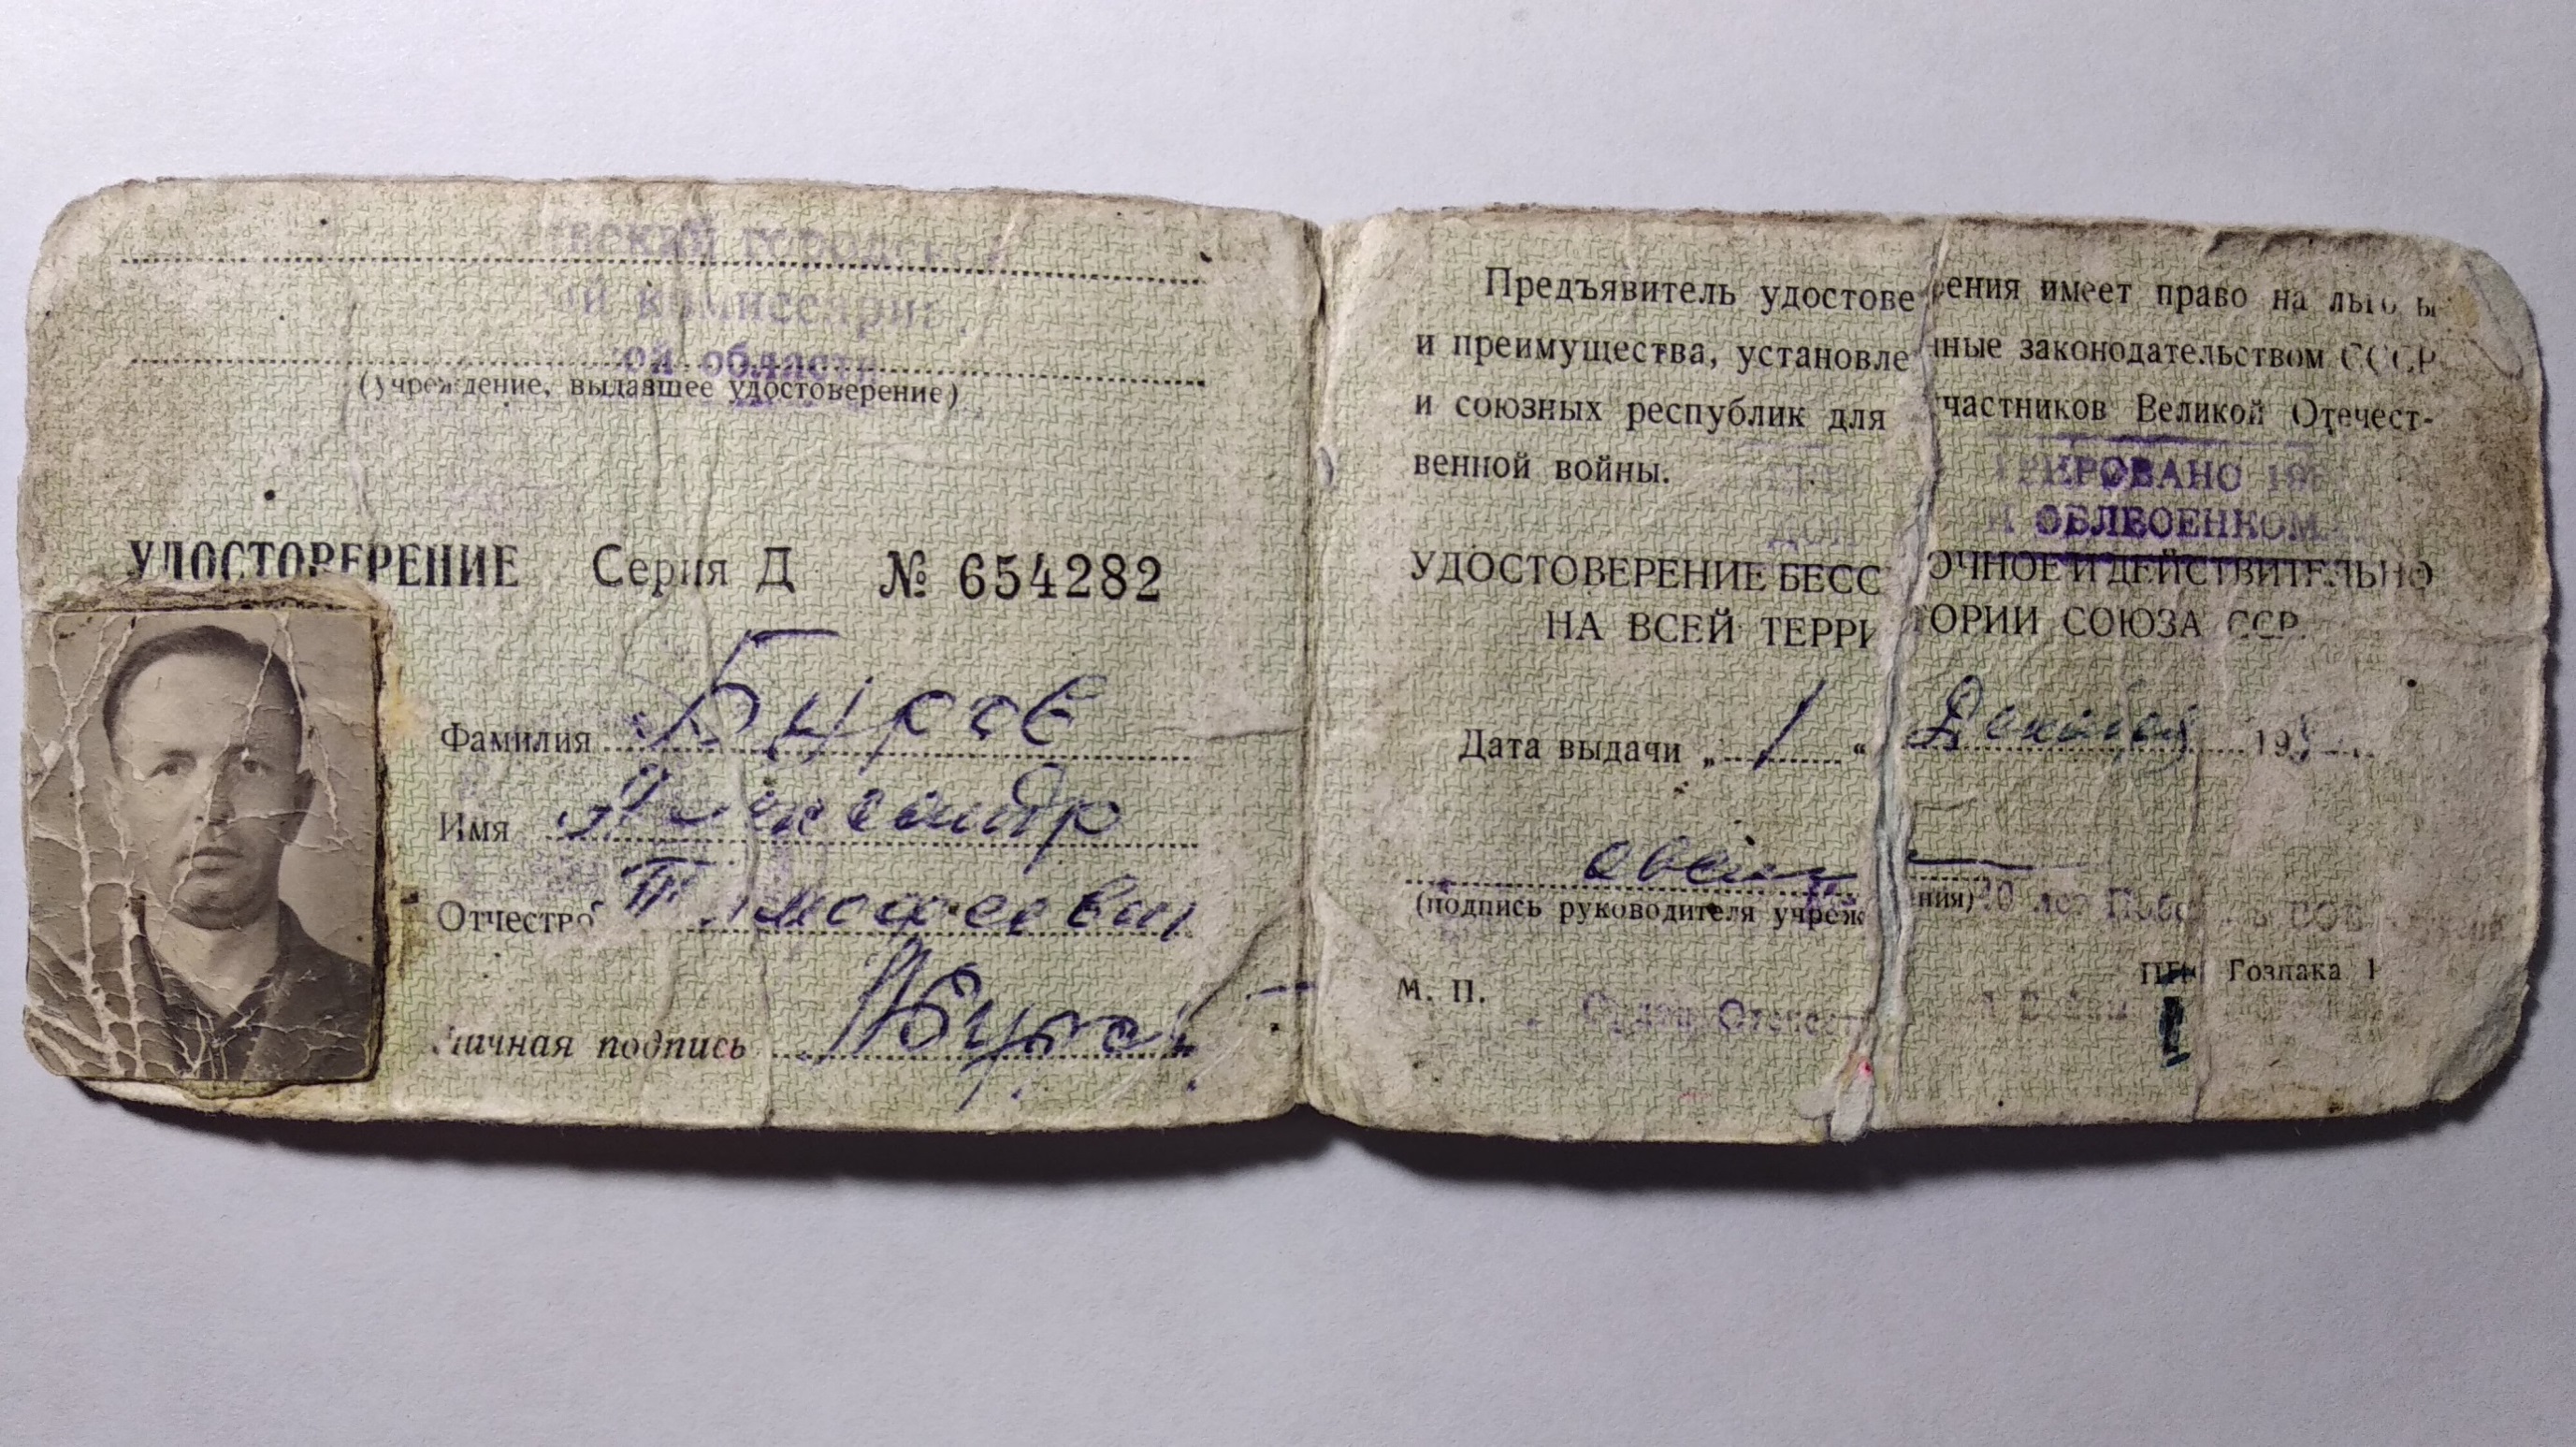 городск
комиссариа
ой области
(учреждение, выдавшее удостоверение)
УДОСТОВЕРЕНИЕ Серия Д № 654282
Фамилия Буров
Имя Александр
Отчество Тимофеевич
Личная подпись
Предъявитель удостоверения имеет право на льготы
и преимущества, установленные законодательством СССР
и союзных республик для участников Великой Отечест-
венной войны.
ТРИРОВАНО 19
ОБЛВОЕНКОМ
УДОСТОВЕРЕНИЕ БЕССРОЧНОЕ И ДЕЙСТВИТЕЛЬНО
НА ВСЕЙ ТЕРРИТОРИИ СОЮЗА ССР.
Дата выдачи „ 1 “ Декабря 19
(подпись руководителя учреждения)
лет Побе
М. П. Гознака
Орден Отечест й Войны I